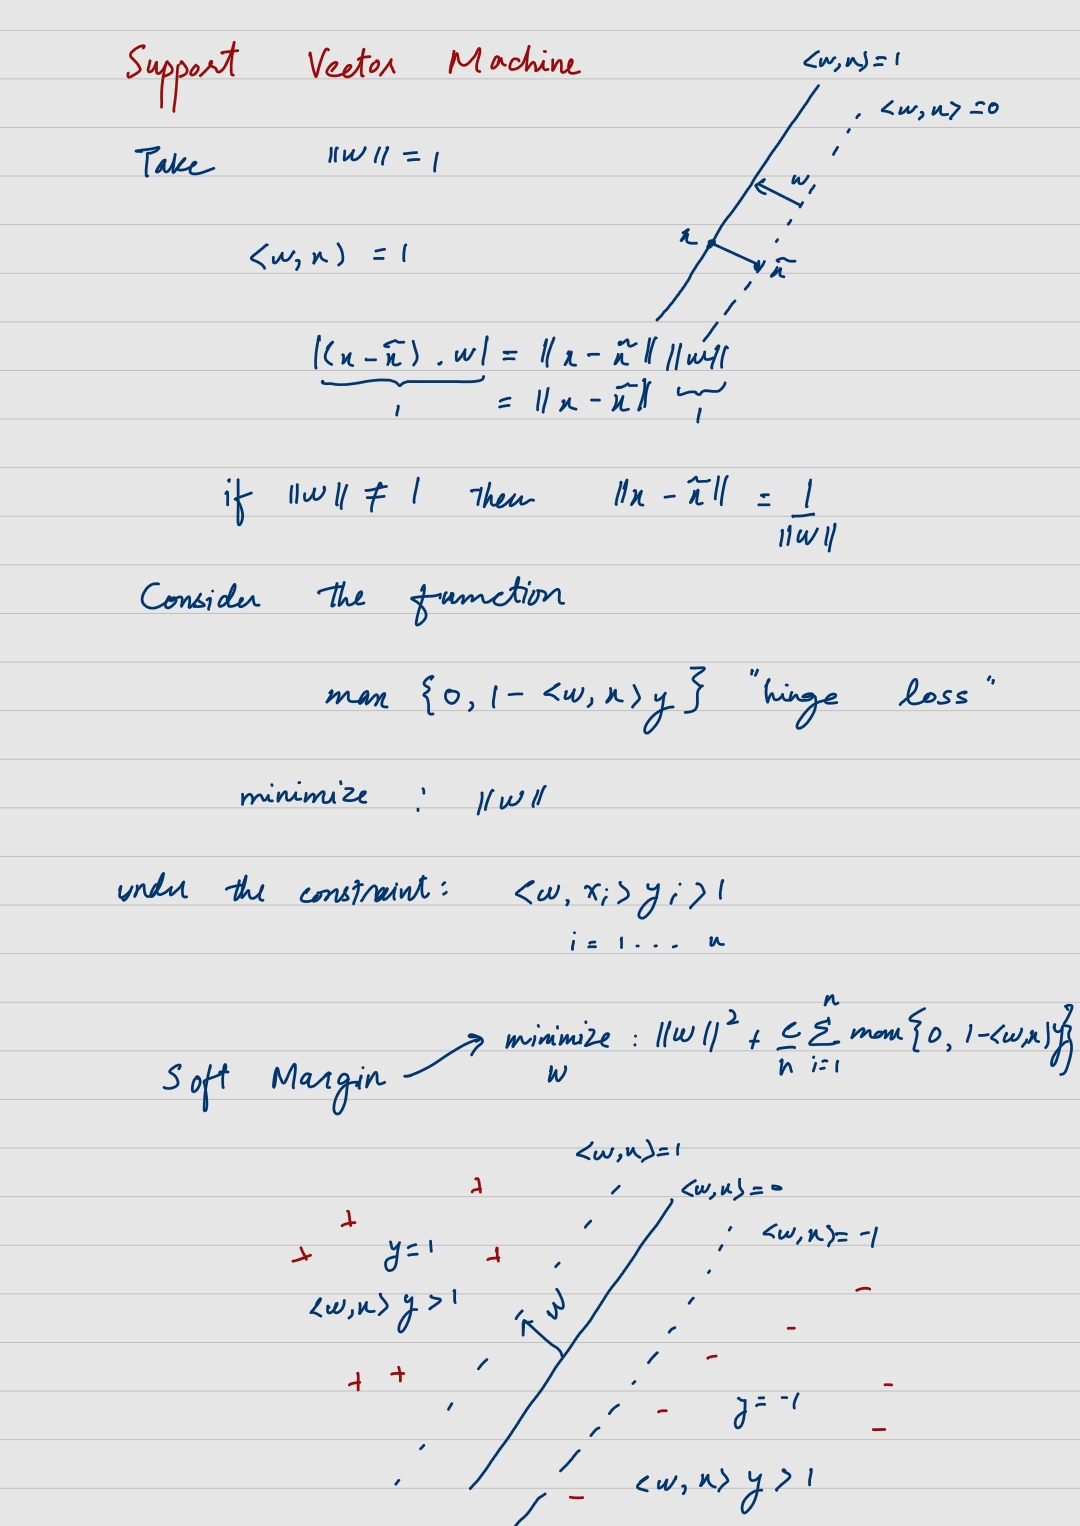 Support Vector Machine
<w, x> = 1
<w, x> = 0
Take ||w|| = 1
w
<w, x> = 1
x
x̃
|(x - x̃) . w| = ||x - x̃|| ||w||
1 = ||x - x̃|| 1
if ||w|| ≠ 1 then ||x - x̃|| = 1/||w||
Consider the function
max {0, 1 - <w, x> y} "hinge loss"
minimize : ||w||
under the constraint: <w, x_i> y_i > 1
i = 1 . . . n
Soft Margin → minimize : ||w||² + c/n Σ_{i=1}^{n} max{0, 1-<w,x>y}
w
<w, x> = 1
<w, x> = 0
<w, x> = -1
y = 1
<w, x> y > 1
w
y = -1
<w, x> y > 1